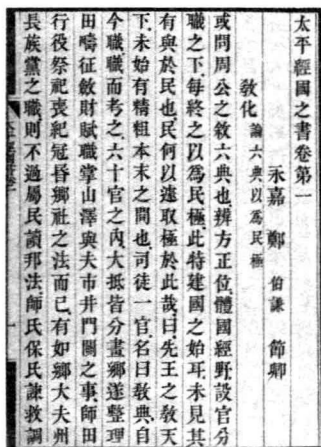 太平經國之書卷第一
永嘉 鄭 伯謙 節卿
敎化 論六典以爲民極
或問周公之敘六典也辨方正位體國經野設官分
職之下每終之以爲民極此特建國之始耳未見其
有與於民也民何以遽取極於此哉曰先王之敎天
下未始有精粗本末之間也司徒一官名曰敎典自
今職職而考之六十官之內大抵皆分畫鄉遂整理
田疇征斂財賦職掌山澤與夫市井門關之事師田
行役祭祀喪紀冠昏鄉社之法而已有如鄉大夫州
長族黨之職則不過屬民讀邦法師氏保氏諫救調